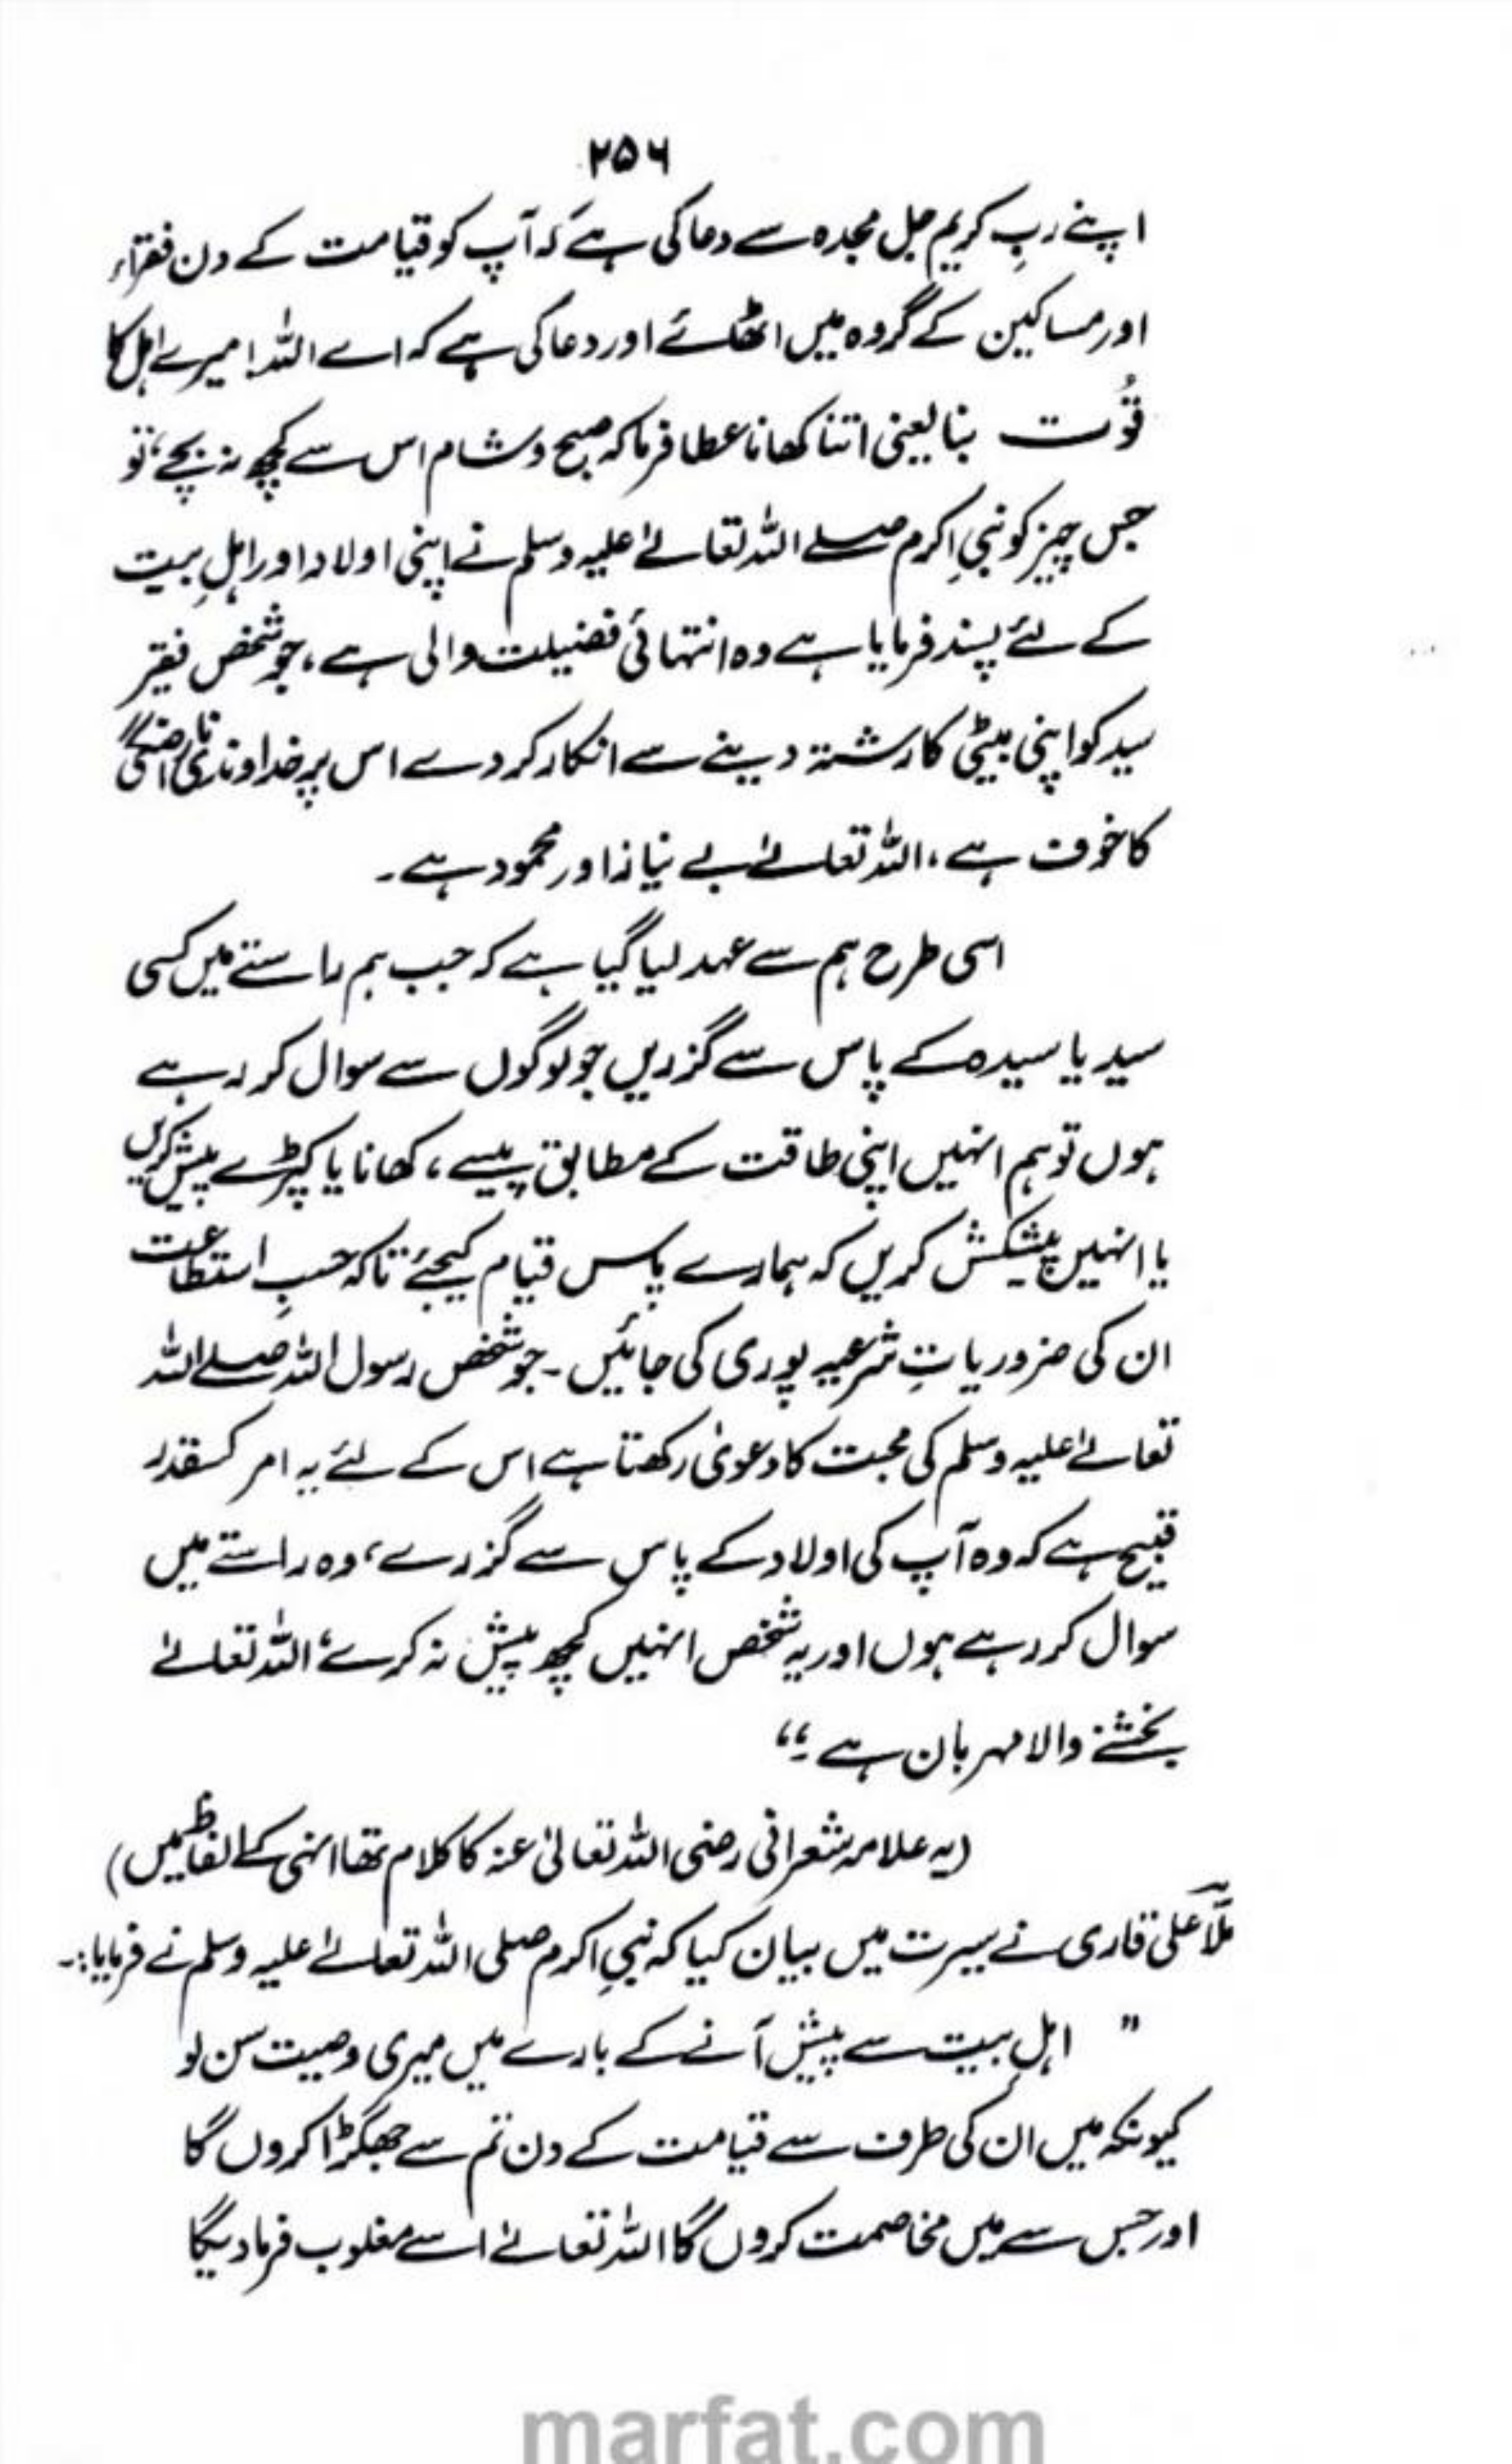 ۲۵۶
اپنے ربِ کریم جل مجدہ سے دعا کی ہے کہ آپ کو قیامت کے دن فقراء
اور مساکین کے گروہ میں اٹھائے اور دعا کی ہے کہ اے اللہ! میرے اہل کا
قُوت بنا یعنی اتنا کھانا عطا فرما کہ صبح و شام اس سے کچھ نہ بچے، تو
جس چیز کو نبیِ اکرم صلے اللہ تعالےٰ علیہ وسلم نے اپنی اولاد اور اہلِ بیت
کے لئے پسند فرمایا ہے وہ انتہائی فضیلت والی ہے، جو شخص فقیر
سید کو اپنی بیٹی کا رشتہ دینے سے انکار کر دے اس پر خداوندی ناراضگی
کا خوف ہے، اللہ تعالےٰ بے نیاز اور محمود ہے۔
اسی طرح ہم سے عہد لیا گیا ہے کہ جب ہم راستے میں کسی
سید یا سیدہ کے پاس سے گزریں جو لوگوں سے سوال کر رہے
ہوں تو ہم انہیں اپنی طاقت کے مطابق پیسے، کھانا یا کپڑے پیش کریں
یا انہیں پیشکش کریں کہ ہمارے پاس قیام کیجئے تاکہ حسبِ استطاعت
ان کی ضروریاتِ شرعیہ پوری کی جائیں۔ جو شخص رسول اللہ صلے اللہ
تعالےٰ علیہ وسلم کی محبت کا دعویٰ رکھتا ہے اس کے لئے یہ امر کسقدر
قبیح ہے کہ وہ آپ کی اولاد کے پاس سے گزرے، وہ راستے میں
سوال کر رہے ہوں اور یہ شخص انہیں کچھ پیش نہ کرے، اللہ تعالےٰ
بخشنے والا مہربان ہے۔“
(یہ علامہ شعرانی رضی اللہ تعالیٰ عنہ کا کلام تھا انہی کے الفاظ میں)
ملّا علی قاری نے سیرت میں بیان کیا کہ نبیِ اکرم صلی اللہ تعالےٰ علیہ وسلم نے فرمایا:۔
" اہل بیت سے پیش آنے کے بارے میں میری وصیت سن لو
کیونکہ میں ان کی طرف سے قیامت کے دن تم سے جھگڑا کروں گا
اور جس سے میں مخاصمت کروں گا اللہ تعالےٰ اسے مغلوب فرما دیگا
marfat.com